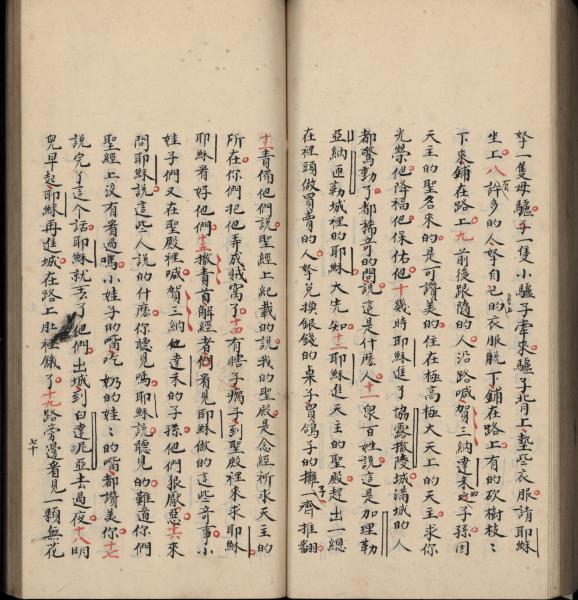 孥一隻母驢子一隻小驢子牽來驢子背上墊些衣服請耶穌
坐上八許多的人孥自己的衣服脫下鋪在路上有的砍樹枝〻
下來鋪在路上九前後跟隨的人沿路喊賀三納達未的子孫因
天主的聖名來的是可讚美的住在極高極大天上的天主求你
光榮他降福他保佑他十幾時耶穌進了協露撒陵城滿城的人
都驚動了都稀奇的問說這是什麼人十一眾百姓說這是加理勒
亞納匝勒城裡的耶穌大先知十二耶穌進天主的聖殿趕出一總
在裡頭做買賣的人孥兌換銀錢的桌子買鴿子的攤子一齊推翻
十三責備他們說聖經上紀載的說我的聖殿是念經祈求天主的
所在你們把他弄成賊窩了十四有瞎子瘸子到聖殿裡來求耶穌
耶穌看好他們十五撒責首解經者們看見耶穌做的這些奇事小
娃子們又在聖殿裡喊賀三納達未的子孫他們狠厭惡十六來
問耶穌說這些人說的什麼你聽見嗎耶穌說聽見的難道你們
聖經上沒有看過嗎小娃子的嘴吃奶的娃〻的嘴都讚美你十七
說完了這个話耶穌就丟了他們出城到白達尼亞去過夜十八明
兒早起耶穌再進城在路上肚裡餓了十九路旁邊看見一顆無花
七十